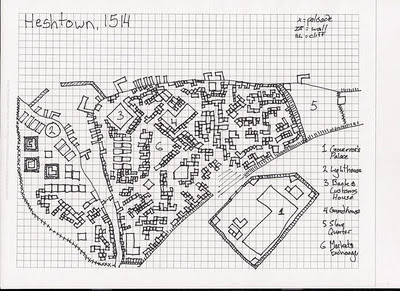 Heshtown, 1514
x = palisade
= wall
= cliff
3
2
4
5
6
1
1 Governor's
Palace
2 Lighthouse
3 Bank &
Customs
House
4
5
Quarter
6 Market &
Exchange